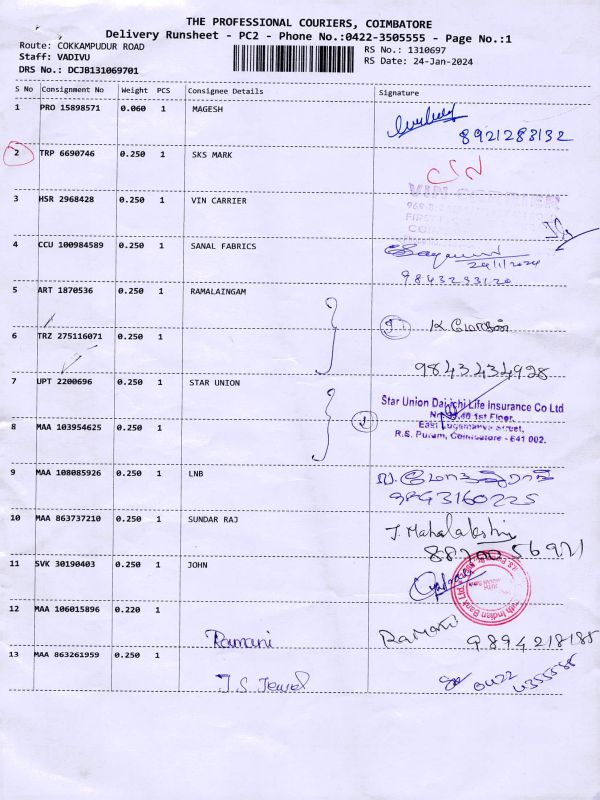 THE PROFESSIONAL COURIERS, COIMBATORE
Delivery Runsheet - PC2 - Phone No.:0422-3505555 - Page No.:1
Route: COKKAMPUDUR ROAD
RS No.: 1310697
Staff: VADIVU
RS Date: 24-Jan-2024
DRS No.: DCJB131069701
S No Consignment No Weight PCS Consignee Details Signature
1 PRO 15898571 0.060 1 MAGESH
8921283132
2 TRP 6690746 0.250 1 SKS MARK
3 HSR 2968428 0.250 1 VIN CARRIER
VIN CARRIER
4 CCU 100984589 0.250 1 SANAL FABRICS
24/1/2024
9843233120
5 ART 1870536 0.250 1 RAMALAINGAM
6 TRZ 275116071 0.250 1
9843434928
7 UPT 2200696 0.250 1 STAR UNION
Star Union Dai-ichi Life Insurance Co Ltd
1st Floor,
East Logamanya Street,
R.S. Puram, Coimbatore - 641 002.
8 MAA 103954625 0.250 1
2
9 MAA 108085926 0.250 1 LNB
9843160225
10 MAA 863737210 0.250 1 SUNDAR RAJ
J. Mahalakshmi
88700 56921
11 SVK 30190403 0.250 1 JOHN
South Indian Bank Ltd
12 MAA 106015896 0.220 1
Ramani Ramani 9894218185
13 MAA 863261959 0.250 1
J.S Jewel
0422
4355585